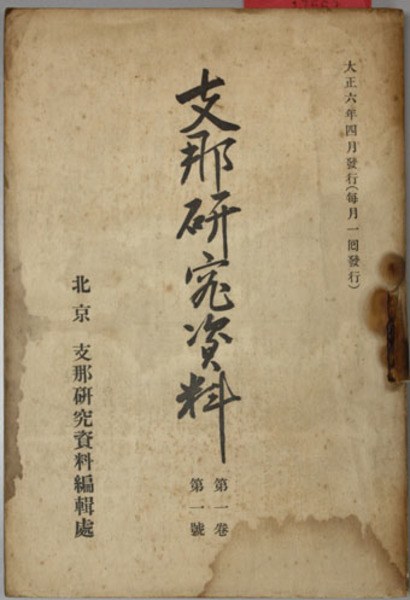 大正六年四月發行(每月一囘發行)
支那研究資料
第一卷
第一號
北京 支那硏究資料編輯處